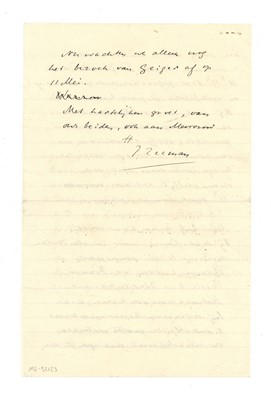 Nu wachten we alleen nog
het bezoek van Geiger af op
11 Mei.
Met hartelijken groet, van
ons beiden, ook aan Mevrouw
tt
P Zeeman